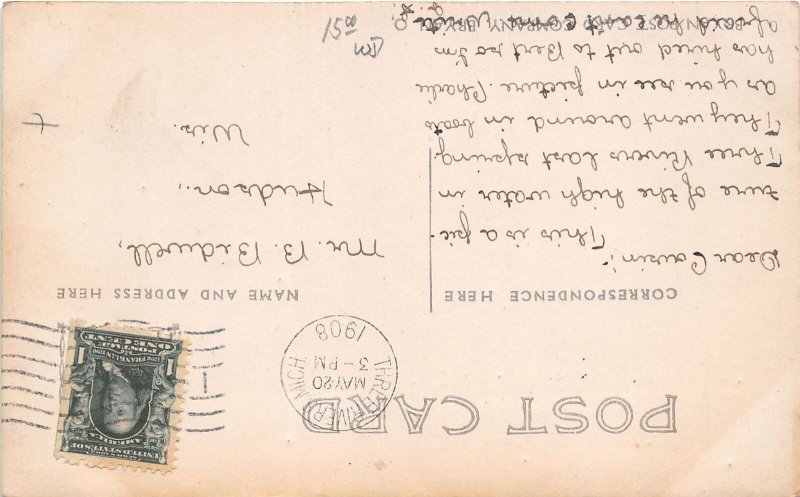 POST CARD
THREE RIVERS MICH.
MAY 20
3-PM
1908
UNITED STATES OF
AMERICA
1 1
POSTAGE
ONE CENT
CORRESPONDENCE HERE
NAME AND ADDRESS HERE
Dear Cousin:
This is a pic-
ture of the high water in
Three Rivers last spring.
They went around in boats
as you see in picture. Charlie
has hired out to Bert so I'm
afraid he can't come
BRYAN POST CARD COMPANY, BRYAN, O.
Mr. B. Bidwell,
Hudson.,
Wis.
15.00